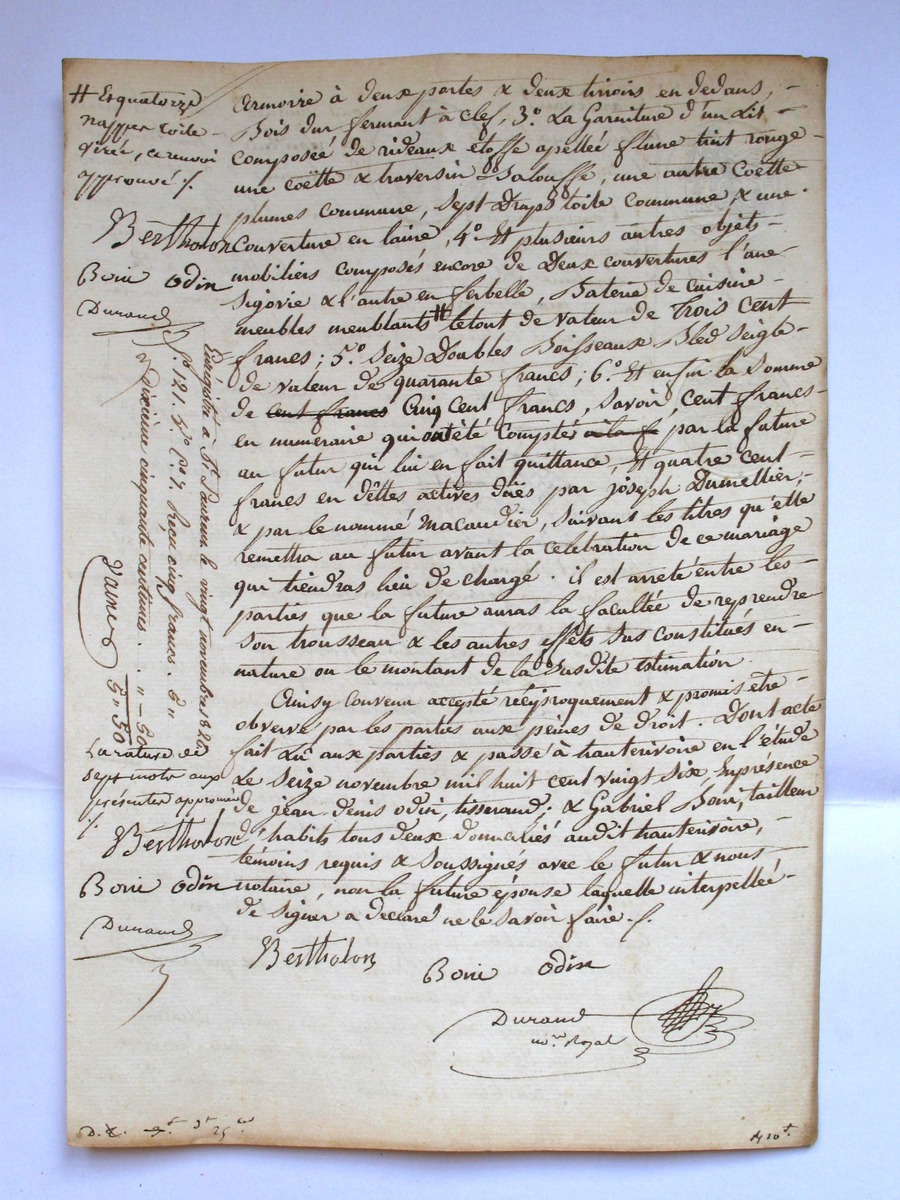 armoire à deux partes & deux tiroirs en dedans, -
Bois dur fermant à clef, 3.° La Garniture d'un Lit -
composée de rideaux étoffe apellée flune teint rouge -
une coëtte & traversin Balouffe, une autre Coëtte
plumes commune, Sept Draps toile Commune & une
Couverture en laine, 4.° Et plusieurs autres objets -
mobiliers Composés encore de Deux couvertures l'une
Sigovie & l'autre en ferbelle, Baterie de Cuisine -
meubles meublants # le tout de valeur de Trois Cent
francs ; 5.° Seize Doubles Boisseaux Bled Seigle -
de valeur de quarante francs ; 6.° Et enfin la Somme
de cent francs Cinq Cent francs, Savoir, Cent francs -
en numeraire qui ont été Comptés à la f par la future
au futur qui lui en fait quittance, Et quatre Cent -
francs en dêttes actives dûes par joseph Dumellier, -
& par le nommé Macaudier, Suivant les titres qu'elle
remettra au futur avant la celebration de ce mariage
qui tiendras lieu de chargé. il est arreté entre les -
parties que la future auras la facultée de reprendre
Son trousseau & les autres effets Sus Constitués en -
nature ou le montant de la Susdite estimation.
Ainsy Convenu accepté réciproquement & promis etre -
observé par les parties aux peines de droit. Dont acte
fait Lû aux parties & passé à hauterivoire en l'étude
Le Seize novembre mil huit cent vingt Six, En presence
de jean denis odin, tisserand, & Gabriel Boni, tailleur
d'habits tous deux domiciliés audit hauterivoire, -
témoins requis & Soussignés avec le futur & nous -
notaire, non la future épouse laquelle interpellée -
de Signer a déclaré ne le Savoir faire ./.
Bertholon
Boni odin
Durand
no.re Royal
# Et quatorze
nappes toile -
cirée, ce renvoi
approuvé ./.
Bertholon
Boni odin
Durand
Enregistré à St Laurent le vingt novembre 1826
f.° 121. R.° C.e 7. Reçu cinq francs. 5 "
dixième cinquante centimes. " - 50
5 " 50
La rature de
Sept mots aux
présentes approuvée
./.
Bertholon
Boni odin
Durand